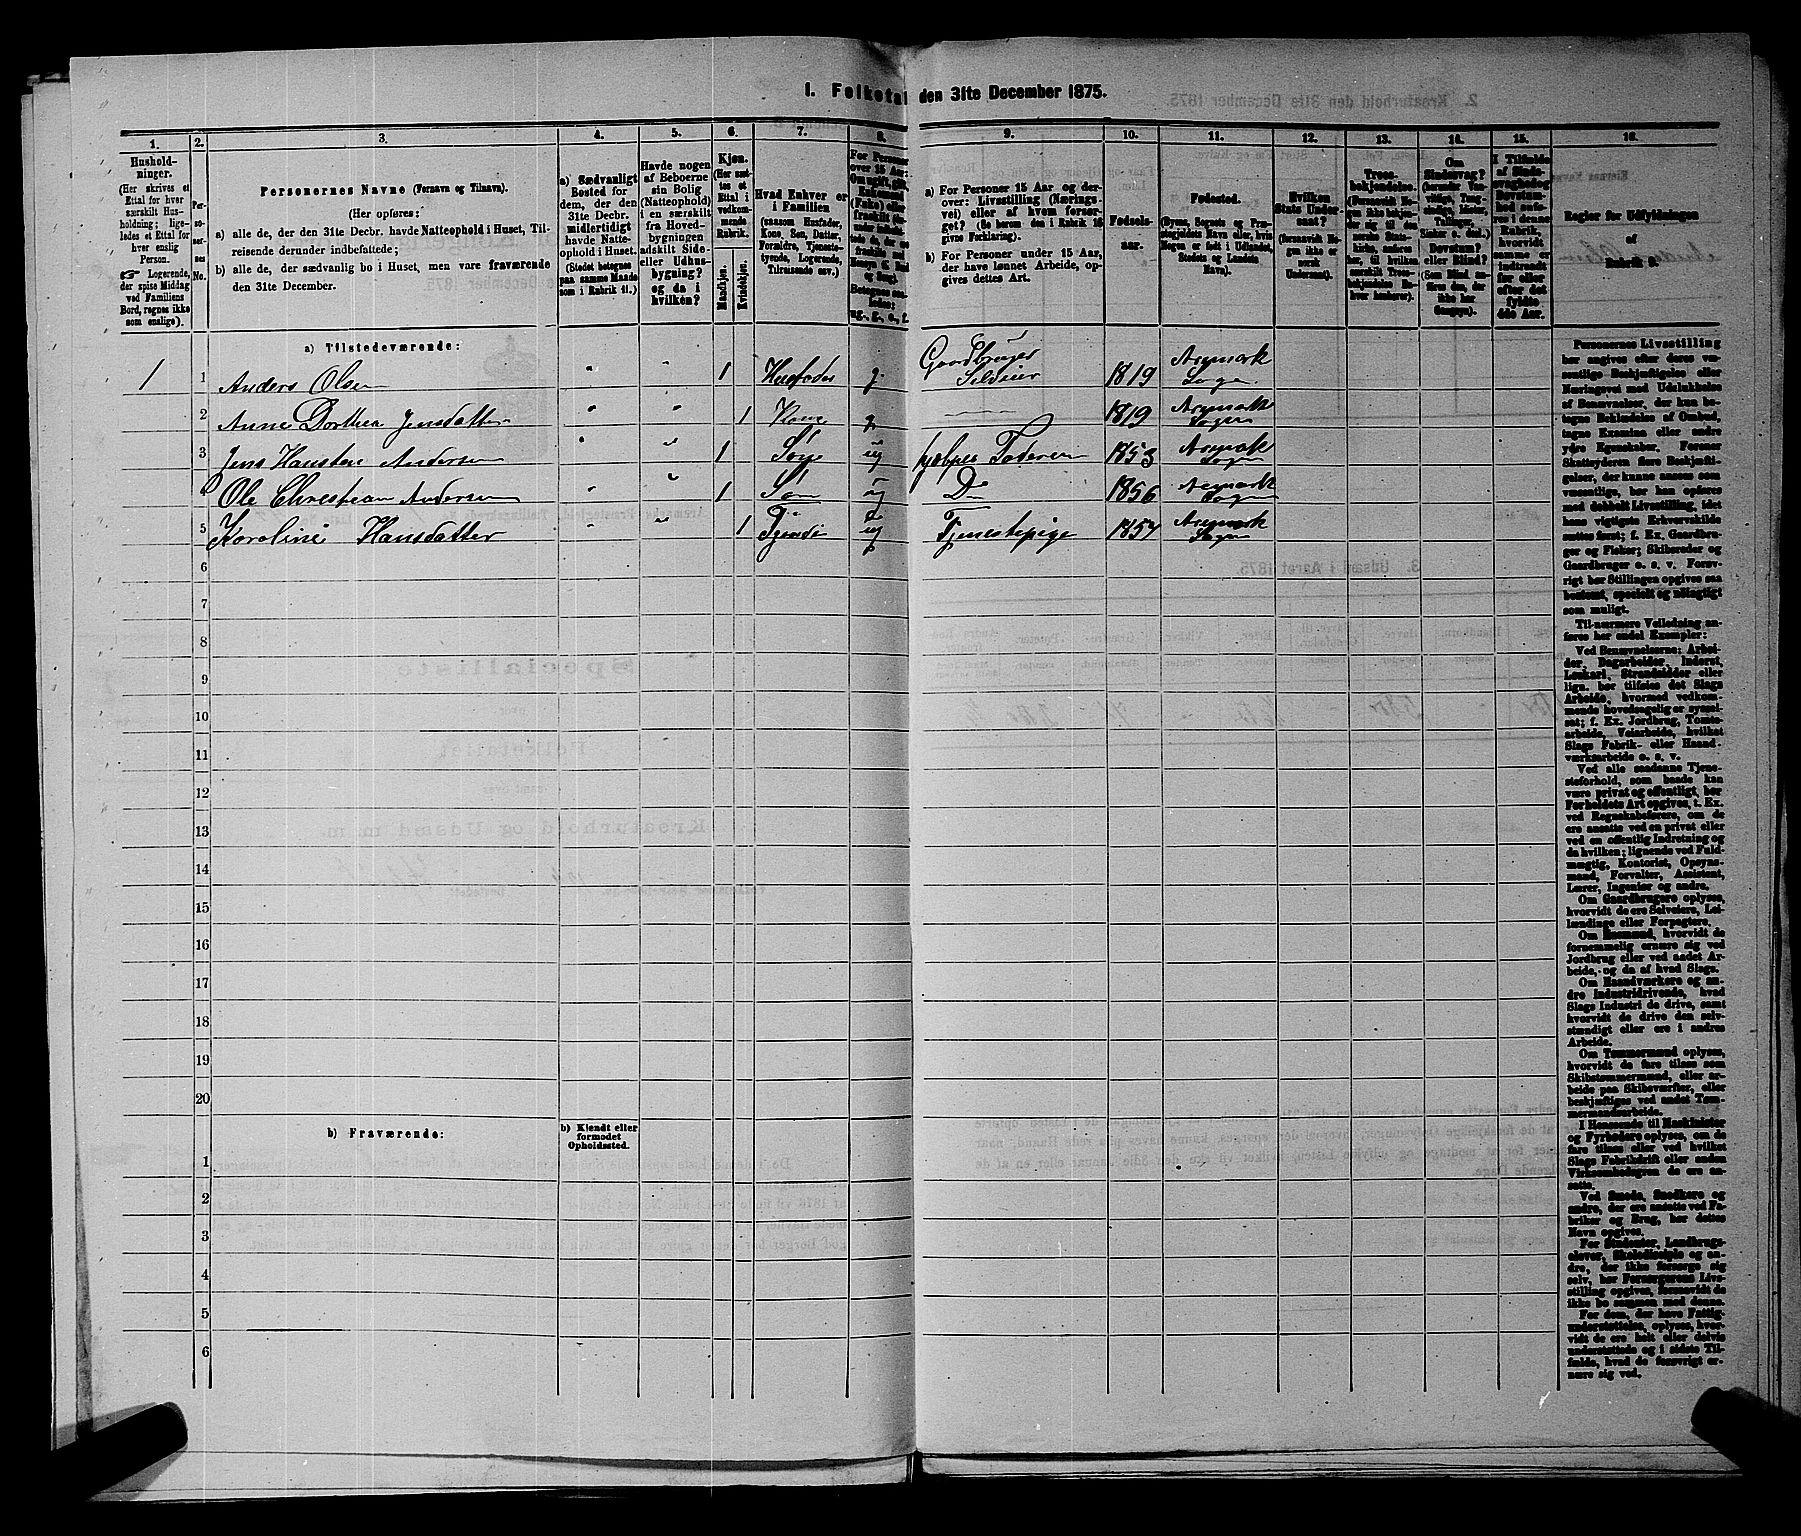 I. Folketal den 31te December 1875.
1. 2. 3. 4. 5. 6. 7. 8. 9. 10. 11. 12. 13. 14. 15. 16.
Hushold-
ninger.
(Her skrives et
Ettal for hver
særskilt Hus-
holdning; lige-
ledes et Ettal for
hver enslig
Person.
☞ Logerende,
der spise Middag
ved Familiens
Bord, regnes ikke
som enslige).
Per-
so-
ner-
nes
No.
Personernes Navne (Fornavn og Tilnavn).
(Her opføres:
a) alle de, der den 31te Decbr. havde Natteophold i Huset, Til-
reisende derunder indbefattede;
b) alle de, der sædvanlig bo i Huset, men vare fraværende
den 31te December.
a) Sædvanligt
Bosted for
dem, der den
31te Decbr.
midlertidigt
havde Natte-
ophold i Huset.
(Stedet betegnes
paa samme Maade
som i Rubrik 11.)
Havde nogen
af Beboerne
sin Bolig
(Natteophold)
i en særskilt
fra Hoved-
bygningen
adskilt Side-
eller Udhus-
bygning?
og da i
hvilken?
Kjøn.
(Her sæt-
tes et
Ettal i
vedkom-
mende
Rubrik.
Mandkjøn.
Kvindekjøn.
Hvad Enhver er
i Familien
(saasom Husfader,
Kone, Søn, Datter,
Forældre, Tjeneste-
tyende, Logerende,
Tilreisende osv.)
For Personer
over 15 Aar:
Om ugift, gift,
Enkemand
(Enke) eller
fraskilt
Betegnes saa-
ledes:
ug., g., e., f.
a) For Personer 15 Aar og der-
over: Livsstilling (Nærings-
vei) eller af hvem forsør-
get? (Se herom den i Rubrik 16
givne Forklaring).
b) For Personer under 15 Aar,
der have lønnet Arbeide, op-
gives dettes Art.
Fødsels-
aar.
Fødested.
(Byens, Sognets og Præ-
stegjeldets Navn eller, hvis
Nogen er født i Udlandet,
Stedets og Landets
Navn).
Hvilken
Stats Under-
saat?
(forsaavidt No-
gen ikke er
norsk
Undersaat.)
Troes-
bekjendelse.
(Forsaavidt No-
gen ikke
bekjender
sig til den
norske Stats-
kirke, anføres
her, til hvilken
særskilt Troes-
bekjendelse En-
hver henhører).
Om
Sindssvag?
Døvstum?
eller Blind?
I Tilfælde
af Sinds-
svaghed
Regler for Udfyldningen
af
Rubrik 9.
a) Tilstedeværende:
1 1 Anders Olsen 1 Husfader g Gaardbruger Selveier 1819 Aremark Sogn
2 Anne Dorthea Jensdatter 1 Kone g 1819 Aremark Sogn
3 Jens Hansten Andersen 1 Søn ug hjælper Faderen 1853 Aremark Sogn
4 Ole Christian Andersen 1 Søn ug Do 1856 Aremark Sogn
5 Karoline Hansdatter 1 ug Tjenestepige 1857 Aremark Sogn
6
7
8
9
10
11
12
13
14
15
16
17
18
19
20
b) Fraværende:
b) Kjendt eller
formodet
Opholdssted.
1
2
3
4
5
6
Personernes Livsstilling
bør angives efter deres væ-
sentlige Beskjæftigelse eller
Næringsvei med Udelukkelse
af Benævnelser, der kun be-
tegne Beklædelse af Ombud,
tagne Examina eller andre
ydre Egenskaber. Forener
Skatteyderen flere Beskjæfti-
gelser, der kunne ansees som
væsentlige, bør han opføres
med dobbelt Livsstilling, idet
hans vigtigste Erhvervskilde
sættes først; f. Ex. Gaardbru-
ger og Fisker; Skibsreder og
Gaardbruger o. s. v. Forøv-
rigt bør Stillingen opgives saa
bestemt, specielt og nøiagtigt
som muligt.
Til nærmere Veiledning an-
føres her endel Exempler:
Ved Benævnelserne: Arbei-
der, Dagarbeider, Inderst,
Løskarl, Strandsidder eller
lign. bør tilføies det Slags
Arbeide, hvormed vedkom-
mende hovedsagelig er syssel-
sat; f. Ex. Jordbrug, Tomte-
arbeide, Veiarbeide, hvilket
Slags Fabrik- eller Haand-
værksarbeide o. s. v.
Ved alle saadanne Tjene-
steforhold, som baade kan
være privat og offentligt, bør
Forholdets Art opgives, t. Ex.
ved Regnskabsførere, om de
ere ansatte ved en privat eller
ved en offentlig Indretning og
da hvilken; lignende ved Fuld-
mægtig, Kontorist, Opsyns-
mand, Forvalter, Assistent,
Lærer, Ingeniør og andre.
Om Gaardbrugere opgives,
hvorvidt de ere Selveiere, Lei-
lændinge eller Forpagtere.
Om Husmænd, hvorvidt de
fornemmelig ernære sig ved
Jordbrug eller ved andet Ar-
beide, og da af hvad Slags.
Om Haandværkere og an-
dre Industridrivende, hvad
Slags Industri de drive, samt
hvorvidt de drive den selv-
stændigt eller ere i andres
Arbeide.
Om Tømmermænd oplyses,
hvorvidt de fare tilsøs som
Skibstømmermænd, eller ar-
beide paa Skibsværfter, eller
beskjæftiges ved andet Tøm-
mermandsarbeide.
I Henseende til Maskinister
og Fyrbødere oplyses, om de
fare tilsøs eller ved hvilket
Slags Fabrikdrift eller anden
Virksomhed de ere an-
satte.
Ved Smede, Snedkere og
andre, der ere ansatte ved Fa-
briker og Brug, bør dettes
Navn opgives.
For Studenter, Landbrugs-
elever, Skoledisciple og an-
dre, der ikke forsørge sig
selv, bør Forsørgerens Livs-
stilling opgives, forsaavidt de
ikke bo sammen med denne.
For dem, der have Fattig-
understøttelse, oplyses, hvor-
vidt de ere helt eller delvis
understøttede og i sidste Til-
fælde, hvad de forøvrigt er-
nære sig ved.